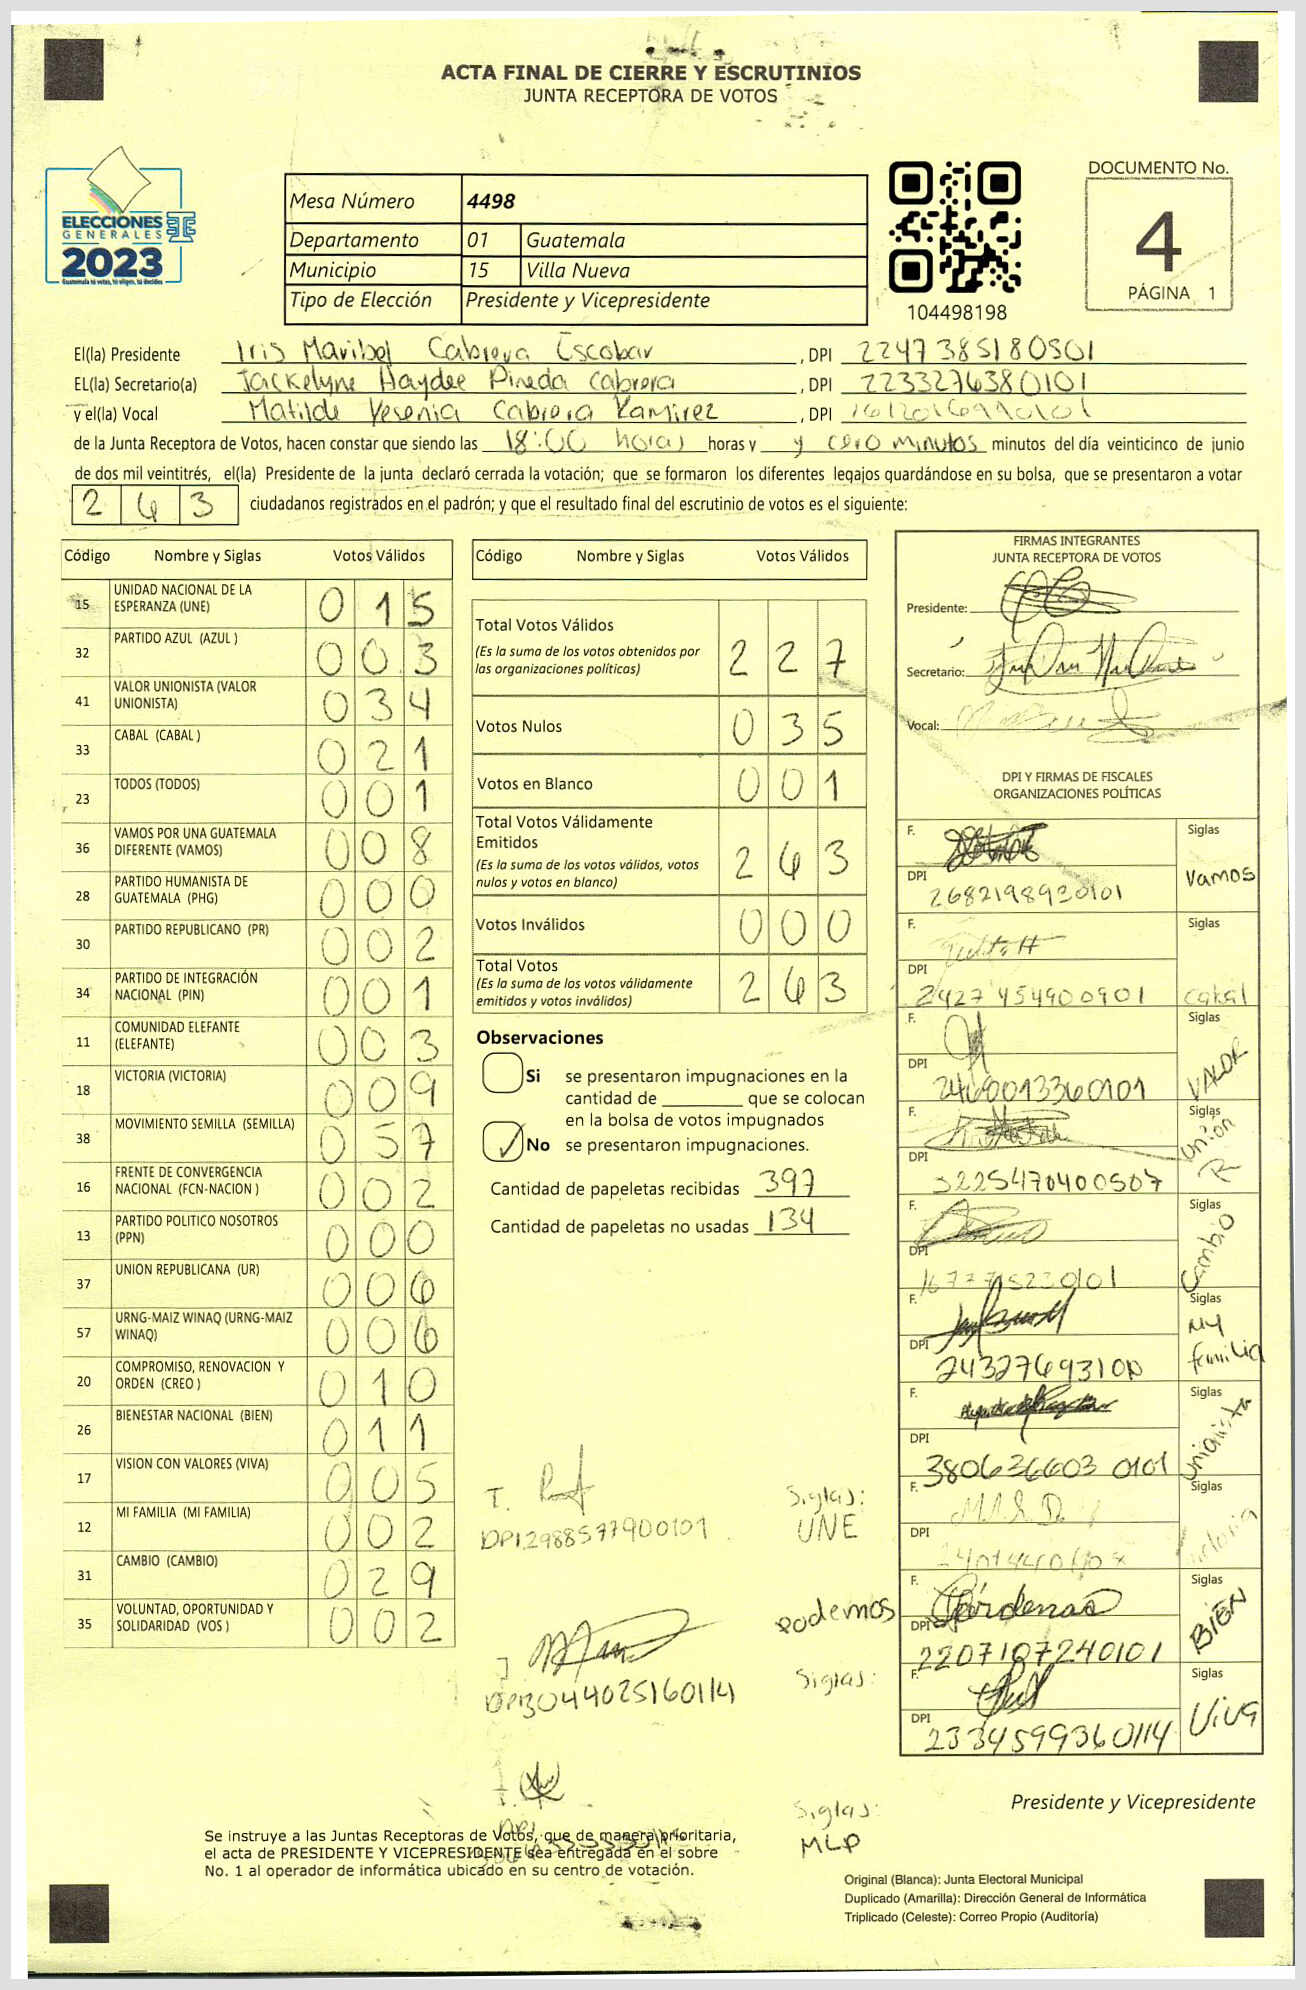 ACTA FINAL DE CIERRE Y ESCRUTINIOS
JUNTA RECEPTORA DE VOTOS
ELECCIONES
GENERALES
2023
Guatemala tú votas, tú eliges, tú decides
Mesa Número 4498
Departamento 01 Guatemala
Municipio 15 Villa Nueva
Tipo de Elección Presidente y Vicepresidente
104498198
DOCUMENTO No.
4
PÁGINA 1
El(la) Presidente Iris Maribel Cabrera Escobar, DPI 2247385180501
EL(la) Secretario(a) Jackelyne Haydee Pineda Cabrera, DPI 2233276380101
y el(la) Vocal Matilde Yesenia Cabrera Ramirez, DPI
de la Junta Receptora de Votos, hacen constar que siendo las 18:00 horas horas y y cero minutos minutos del día veinticinco de junio
de dos mil veintitrés, el(la) Presidente de la junta declaró cerrada la votación; que se formaron los diferentes legajos quardándose en su bolsa, que se presentaron a votar
263 ciudadanos registrados en el padrón; y que el resultado final del escrutinio de votos es el siguiente:
Código Nombre y Siglas Votos Válidos
15 UNIDAD NACIONAL DE LA ESPERANZA (UNE) 015
32 PARTIDO AZUL (AZUL ) 003
41 VALOR UNIONISTA (VALOR UNIONISTA) 034
33 CABAL (CABAL ) 021
23 TODOS (TODOS) 001
36 VAMOS POR UNA GUATEMALA DIFERENTE (VAMOS) 008
28 PARTIDO HUMANISTA DE GUATEMALA (PHG) 000
30 PARTIDO REPUBLICANO (PR) 002
34 PARTIDO DE INTEGRACIÓN NACIONAL (PIN) 001
11 COMUNIDAD ELEFANTE (ELEFANTE) 003
18 VICTORIA (VICTORIA) 009
38 MOVIMIENTO SEMILLA (SEMILLA) 057
16 FRENTE DE CONVERGENCIA NACIONAL (FCN-NACION ) 002
13 PARTIDO POLITICO NOSOTROS (PPN) 000
37 UNION REPUBLICANA (UR) 006
57 URNG-MAIZ WINAQ (URNG-MAIZ WINAQ) 006
20 COMPROMISO, RENOVACION Y ORDEN (CREO ) 010
26 BIENESTAR NACIONAL (BIEN) 011
17 VISION CON VALORES (VIVA) 005
12 MI FAMILIA (MI FAMILIA) 002
31 CAMBIO (CAMBIO) 029
35 VOLUNTAD, OPORTUNIDAD Y SOLIDARIDAD (VOS ) 002
Código Nombre y Siglas Votos Válidos
Total Votos Válidos
(Es la suma de los votos obtenidos por
las organizaciones políticas) 227
Votos Nulos 035
Votos en Blanco 001
Total Votos Válidamente
Emitidos
(Es la suma de los votos válidos, votos
nulos y votos en blanco) 263
Votos Inválidos 000
Total Votos
(Es la suma de los votos válidamente
emitidos y votos inválidos) 263
Observaciones
Si se presentaron impugnaciones en la
cantidad de ________ que se colocan
en la bolsa de votos impugnados
No se presentaron impugnaciones.
Cantidad de papeletas recibidas 397
Cantidad de papeletas no usadas 134
DPI 2988577900101
Siglas:
UNE
podemos
DPI 3044025160114
Siglas:
DPI
Siglas:
MLP
FIRMAS INTEGRANTES
JUNTA RECEPTORA DE VOTOS
Presidente:
Secretario:
Vocal:
DPI Y FIRMAS DE FISCALES
ORGANIZACIONES POLÍTICAS
F. Siglas
DPI Vamos
2682198920101
F. Siglas
DPI
2427454900901 cabal
F. Siglas
DPI VALOR
2469013360101
F. Siglas
DPI unión R
3225470400507
F. Siglas
DPI Cambio
F. Siglas
DPI My familia
F. Siglas
DPI unionista
3806366030101
F. Siglas
DPI Victoria
F. Cárdenas Siglas
DPI BIEN
2207107240101
F. Siglas
DPI Viva
2334599360114
Presidente y Vicepresidente
Se instruye a las Juntas Receptoras de Votos, que de manera prioritaria,
el acta de PRESIDENTE Y VICEPRESIDENTE sea entregada en el sobre
No. 1 al operador de informática ubicado en su centro de votación.
Original (Blanca): Junta Electoral Municipal
Duplicado (Amarilla): Dirección General de Informática
Triplicado (Celeste): Correo Propio (Auditoría)